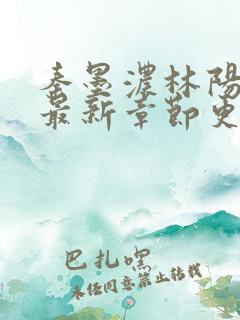 秦墨濃林陽
最新章節更
巴扎嘿
未经同意禁止转载